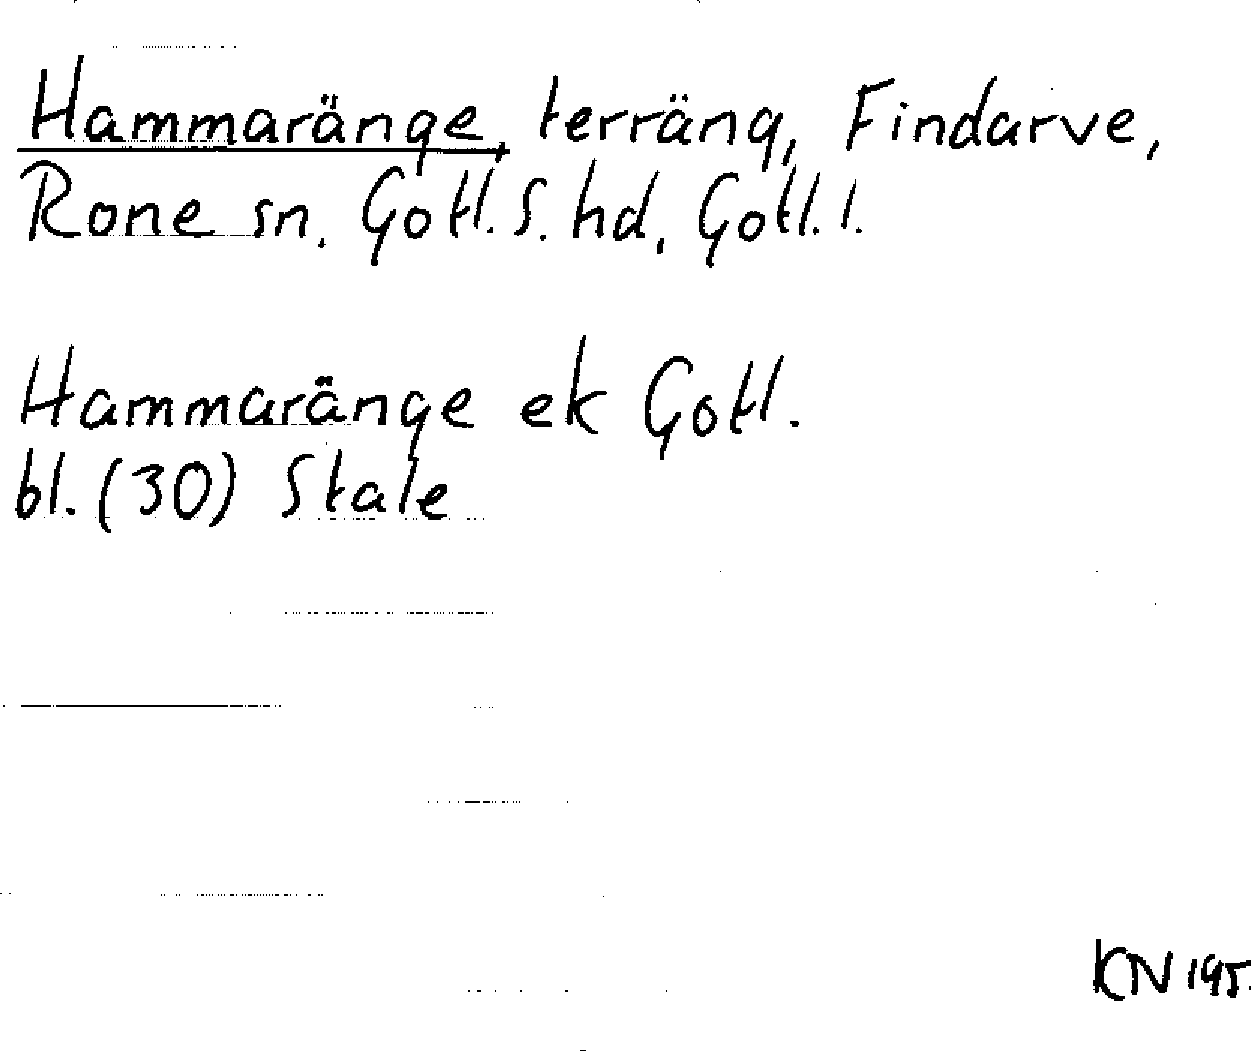 Hammaränge, terräng, Findarve,
Rone sn. Gotl. S. hd. Gotl. l.
Hammaränge ek Gotl.
bl. (30) Stale
KN 195